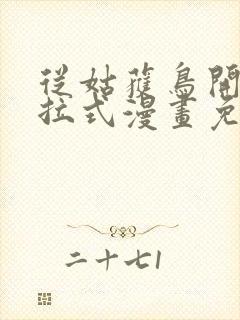 從姑獲鳥開
拉式漫畫免
二十七1